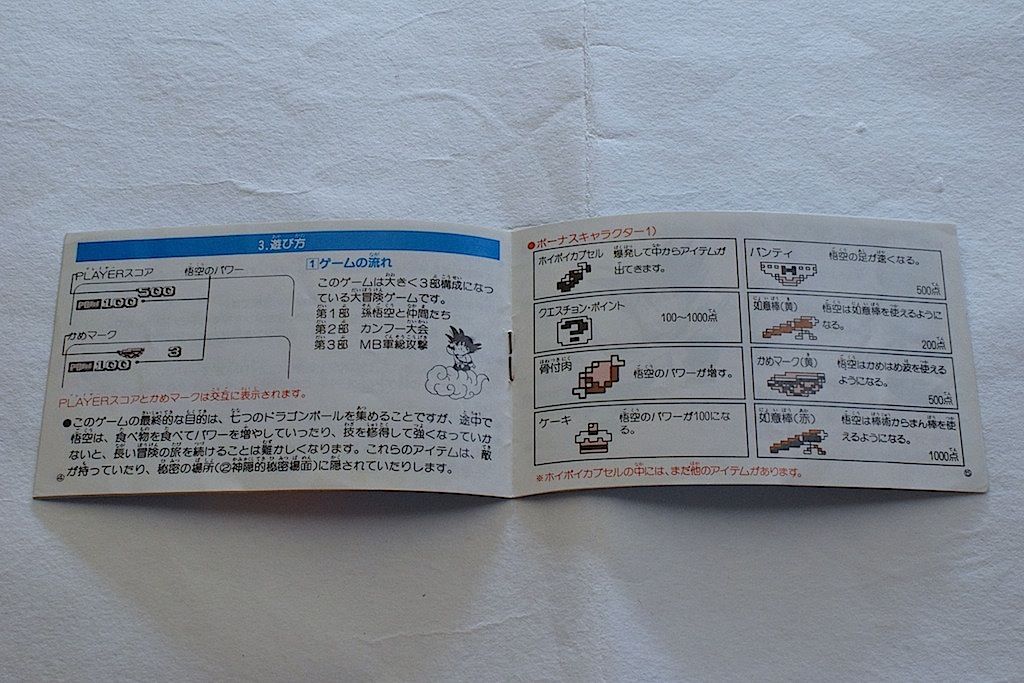 3.遊び方
PLAYERスコア 悟空のパワー
500
POW 100
かめマーク
3
POW 100
PLAYERスコアとかめマークは交互に表示されます。
1 ゲームの流れ
このゲームは大きく3部構成になっ
ている大冒険ゲームです。
第1部 孫悟空と仲間たち
第2部 カンフー大会
第3部 MB軍総攻撃
●このゲームの最終的な目的は、七つのドラゴンボールを集めることですが、途中で
悟空は、食べ物を食べてパワーを増やしていったり、技を修得して強くなっていか
ないと、長い冒険の旅を続けることは難かしくなります。これらのアイテムは、敵
が持っていたり、秘密の場所(②神隠的秘密場面)に隠されていたりします。
●ボーナスキャラクター1)
ホイポイカプセル 爆発して中からアイテムが
出てきます。
クエスチョン・ポイント
100〜1000点
骨付肉
悟空のパワーが増す。
ケーキ 悟空のパワーが100にな
る。
パンティ 悟空の足が速くなる。
500点
如意棒(黄) 悟空は如意棒を使えるように
なる。
200点
かめマーク(黄) 悟空はかめはめ波を使える
ようになる。
500点
如意棒(赤) 悟空は棒術からまん棒を使
えるようになる。
1000点
※ホイポイカプセルの中には、まだ他のアイテムがあります。